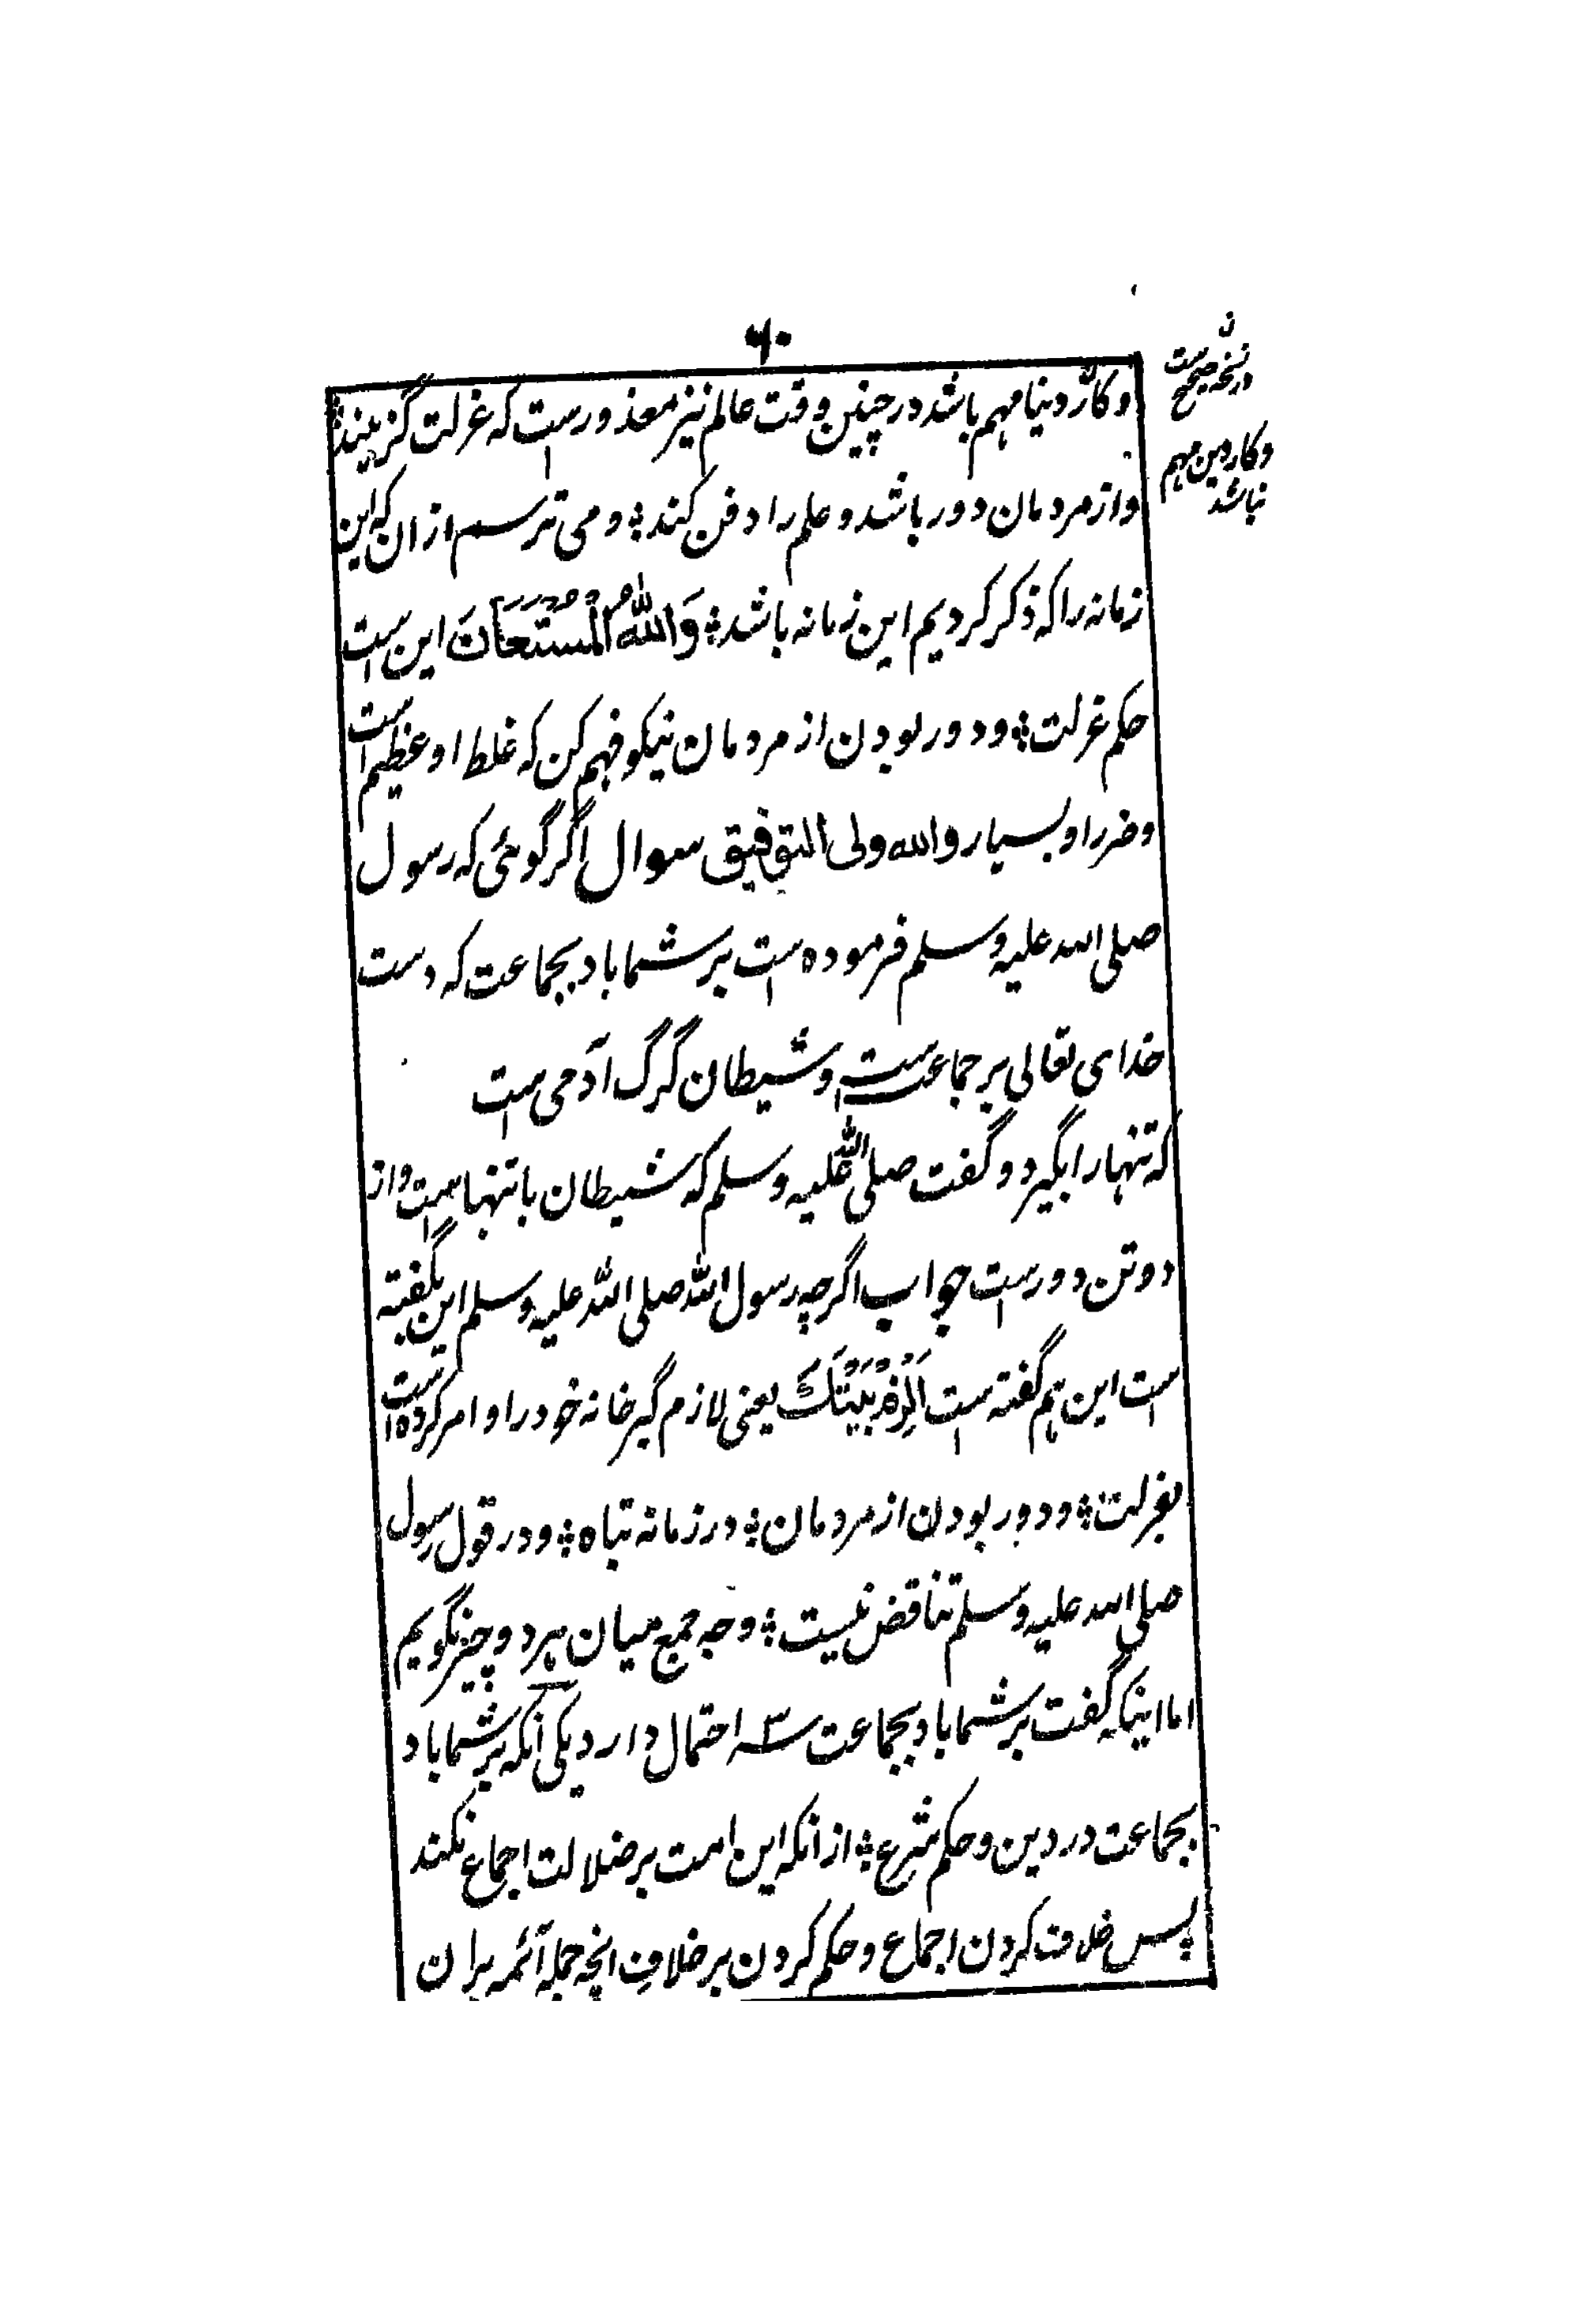 ۶۰
وکار دنیا مهم باشد در چنین وقت عالم نیز معذورست که عزلت گزیند؛
واز مردمان دور باشد وعلم را دفن کند؛ ومی ترسم ازان که این
زمانه را که ذکر کردیم این زمانه باشد؛ وَاللهُ الْمُسْتَعَانَ این ست
حکم عزلت؛ ودور بودن از مردمان نیکو فهم کن که غلط او عظیم است
وضرر او بسیار والله ولی التوفیق سوال اگر گوئی که رسول
صلی الله علیه وسلم فرموده است بر شما باد بجماعت که دست
خدای تعالی بر جماعت ست وشیطان گرگ آدمی است
که تنها را بگیرد وگفت صلی الله علیه وسلم که شیطان با تنها ست واز
دو تن دور ست جواب اگرچه رسول الله صلی الله علیه وسلم این بگفته
است این هم گفته ست اَلْزِمْ بَیْتَكَ یعنی لازم گیر خانه خود را وامر کرده است
بعزلت؛ ودور بودن از مردمان؛ در زمانه تباه؛ ودر قول رسول
صلی الله علیه وسلم تناقض نیست؛ وجه جمع میان هر دو چیز گویم
اما اینکه گفت بر شما باد بجماعت سه احتمال دارد یکی آنکه بر شما باد
بجماعت در دین وحکم شرع؛ از انکه این امت بر ضلالت اجماع نکند
پس خلاف کردن اجماع وحکم کردن بر خلاف انچه جمله آئمه بران
ن
در نسخه صحیح ست
وکار دین مهم
نباشد